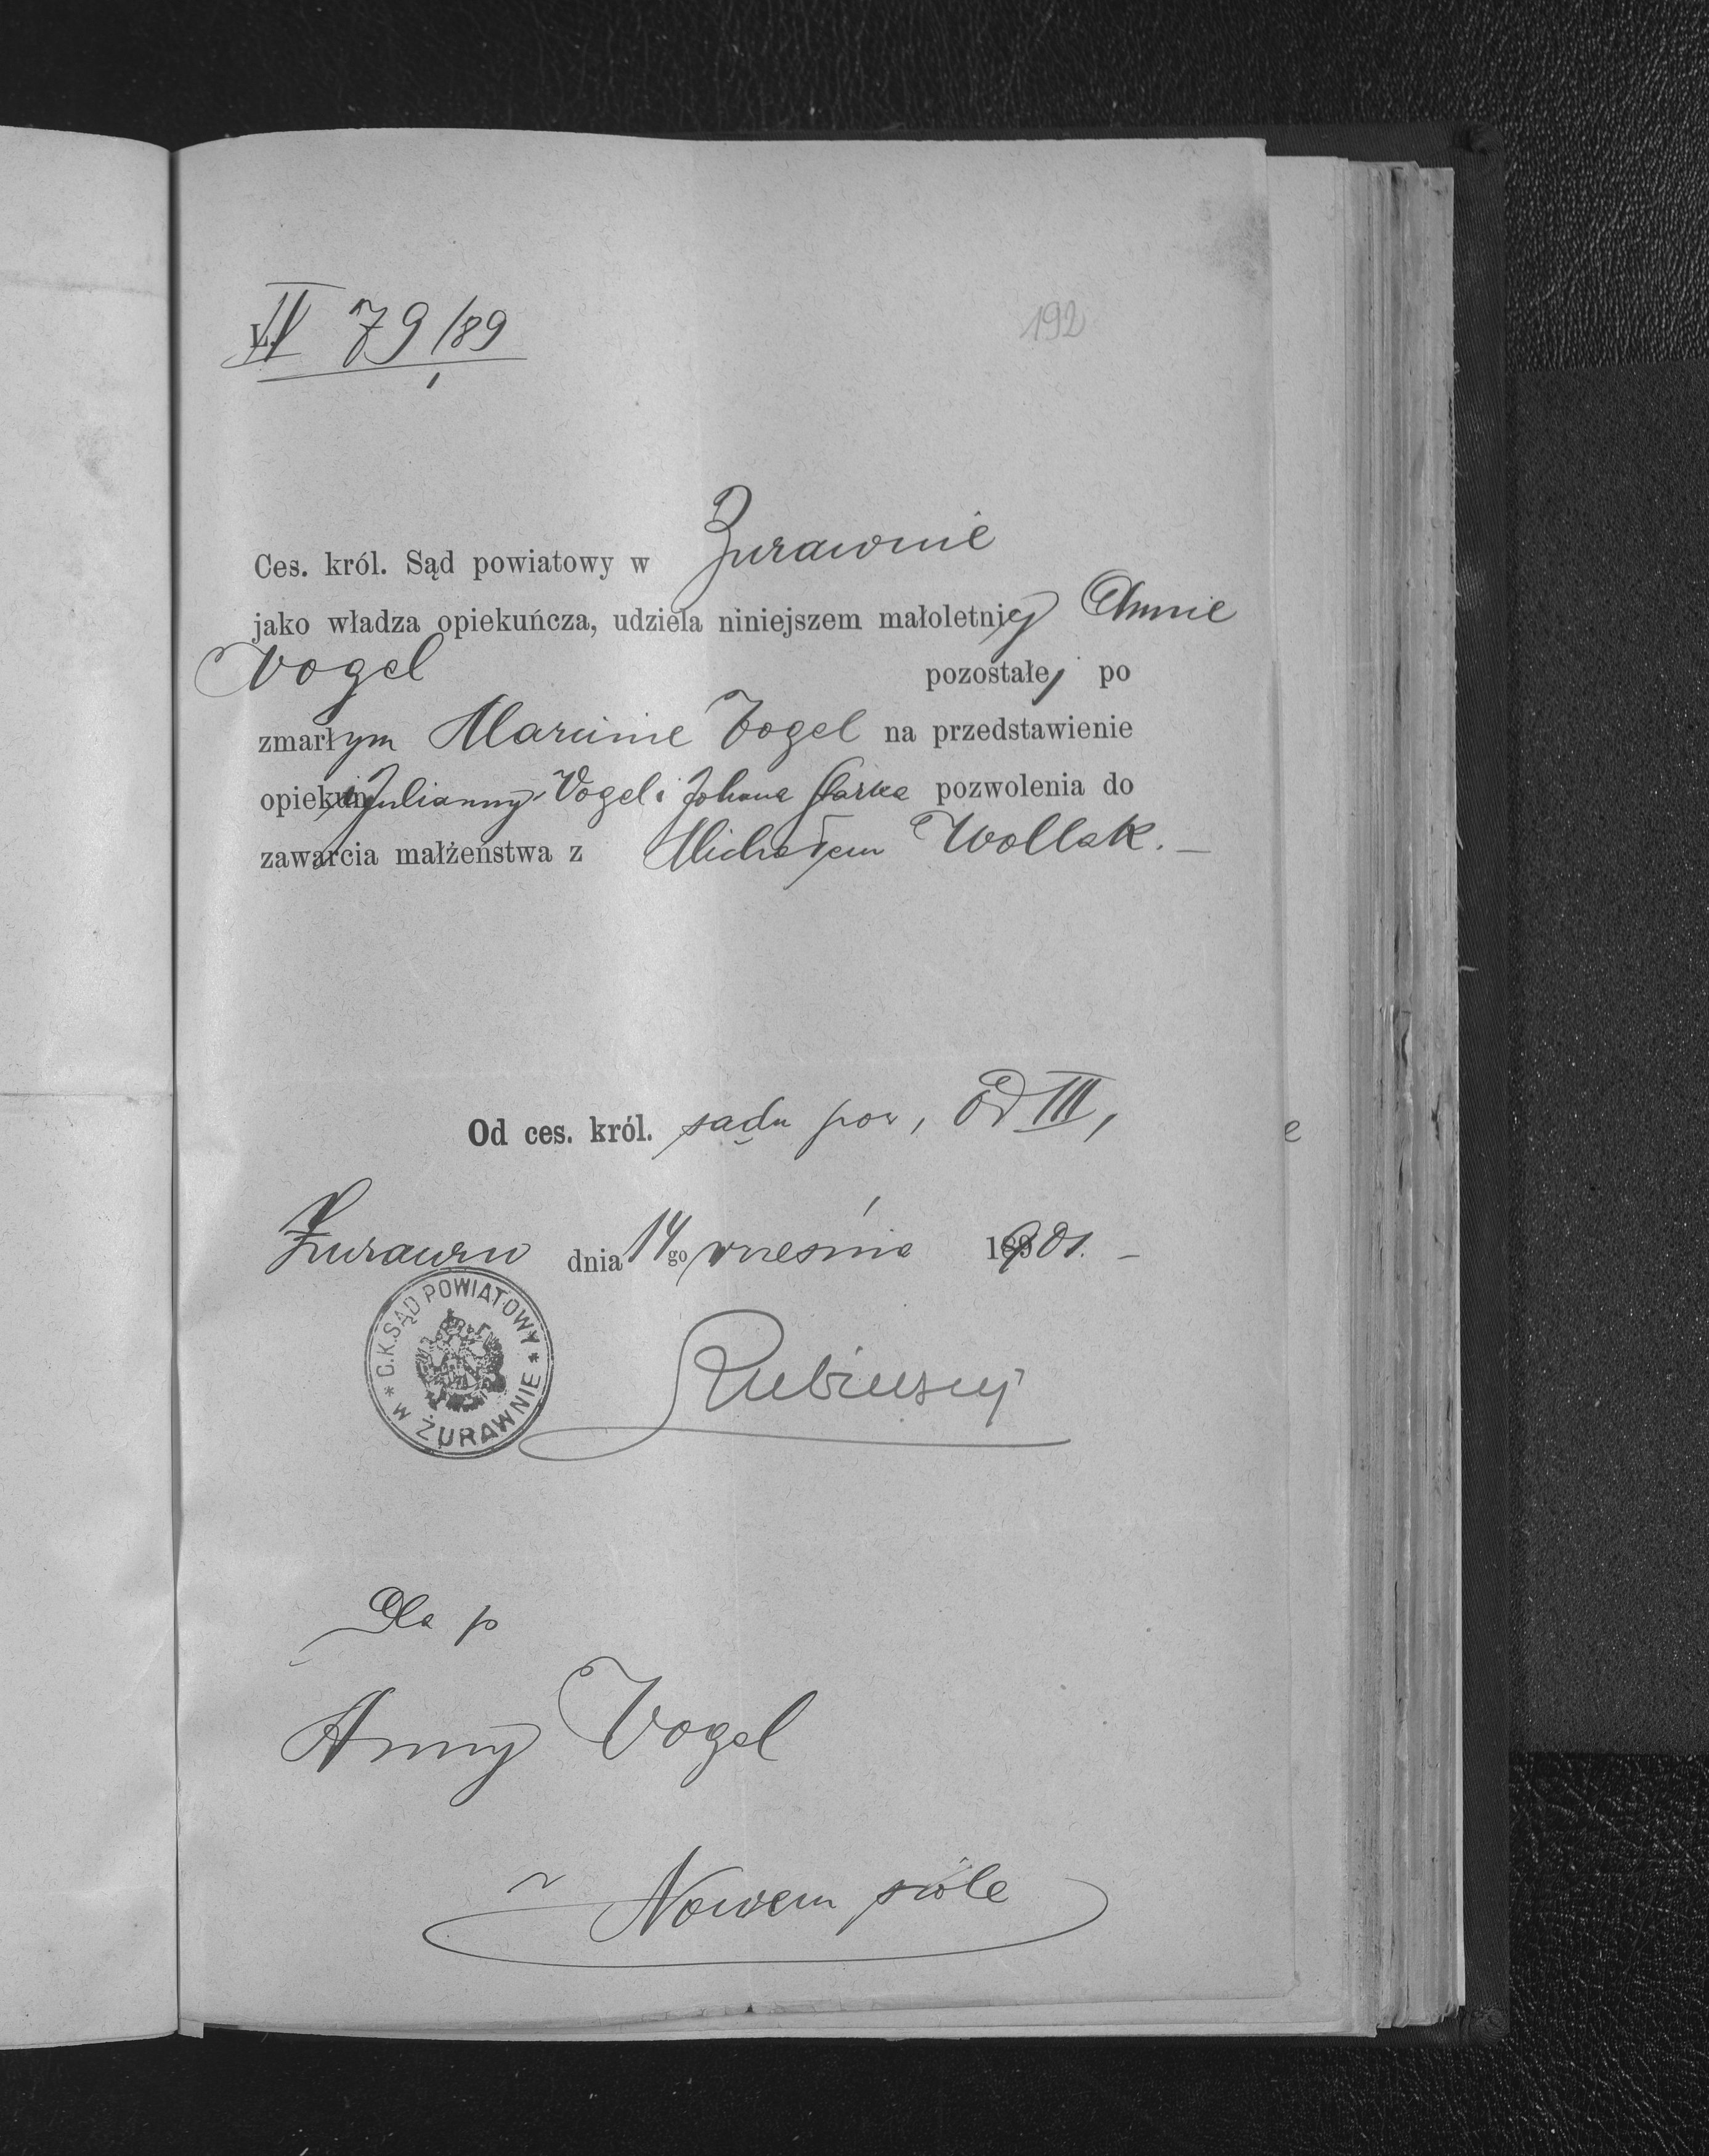 IV 79/89
1
192
Ces. król. Sąd powiatowy w Żurawnie
jako władza opiekuńcza, udziela niniejszem małoletniej Annie
Vogel pozostałej po
zmarłym Marcinie Vogel na przedstawienie
opiekun Julianny Vogel i Johana pozwolenia do
zawarcia małżeństwa z Michałem Wollak. —
Od ces. król. sądu pow, Od III,
Żurawno dnia 14 go września 1901. —
C.K. SĄD POWIATOWY
W ŻURAWNIE
Dla p
Anny Vogel
w
Nowem siole